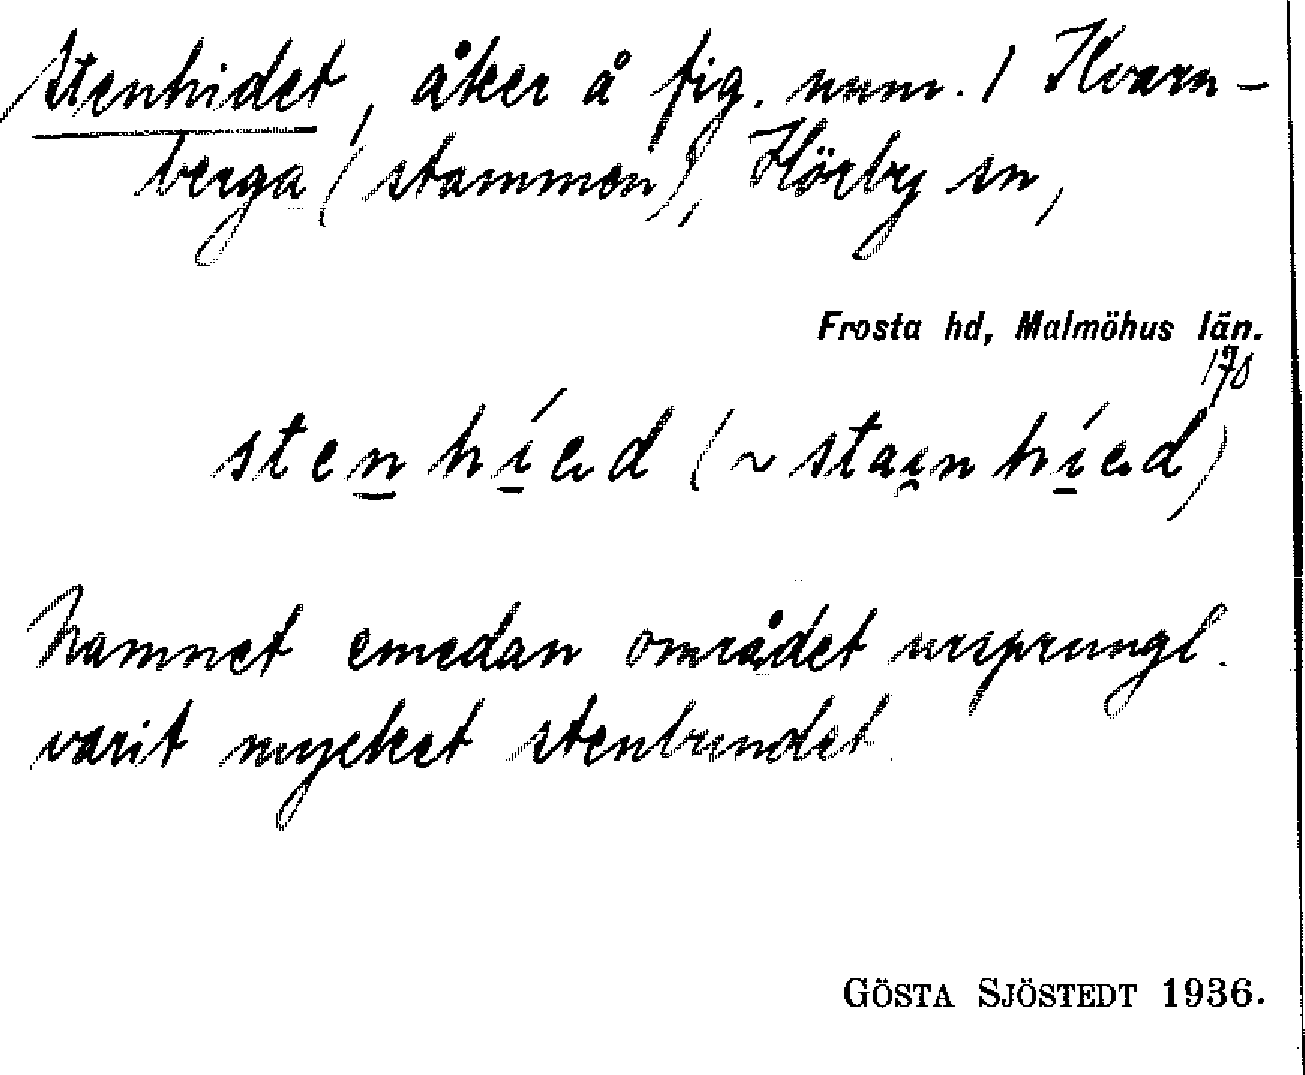 Stenhidet, åker å fig. num. 1 Hvarn-
berga (stammen), Hörby sn,
Frosta hd, Malmöhus län.
170
sten híəd (~ stai̯n híəd)
Namnet emedan området ursprungl.
varit mycket stenbundet.
GÖSTA SJÖSTEDT 1936.